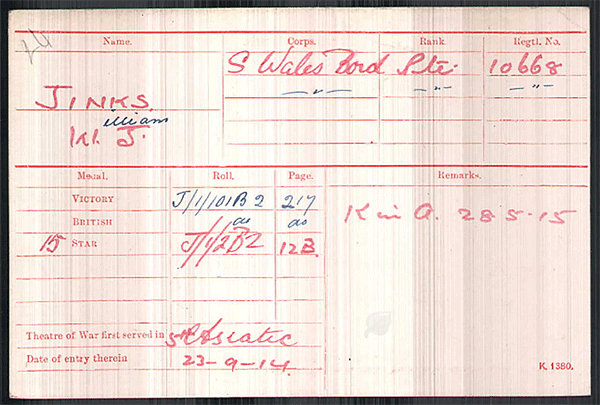 Name. Corps. Rank Regtl. No.
S Wales Bord Pte. 10668
JINKS. —"— —"— —"—
illiam
W. J.
Medal. Roll. Page. Remarks.
VICTORY J/1/101B2 217
BRITISH do do K in A. 28-5-15
15 STAR J/1/2B2 12B.
Theatre of War first served in Asiatic
Date of entry therein 23-9-14.
K. 1380.